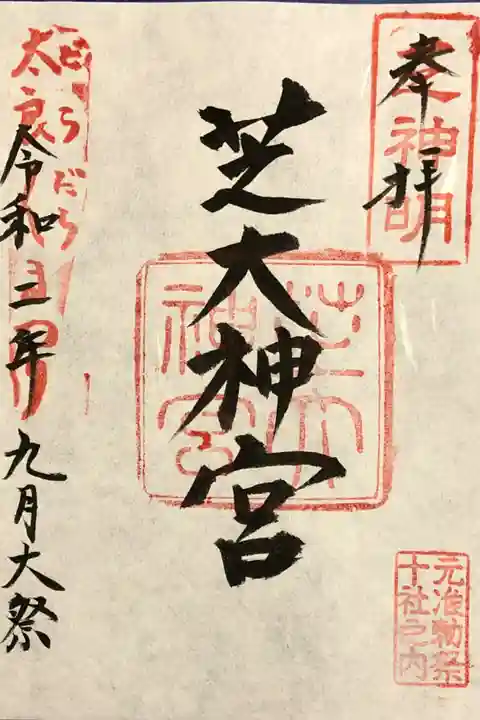 奉拝
神明
芝大神宮
芝大
神宮
元准勅祭
十社之内
令和二年九月大祭
太良
だらだら